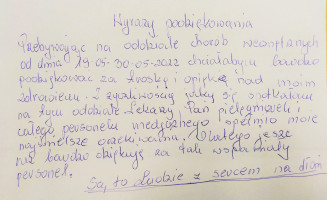 Wyrazy podziękowania
Przebywając na oddziale chorób wewnętrznych
od dnia 19.05-30.05-2022 chciałabym bardzo
podziękować za troskę i opiekę nad moim
zdrowiem. Z życzliwością jaką się spotkałam
na tym oddziale Lekarzy, Pań pielęgniarek i
całego personelu medycznego spełniło moje
najśmielsze oczekiwania. Dlatego jeszcze
raz bardzo dziękuję za tak wspaniały
personel.
Są to Ludzie z sercem na dłoni